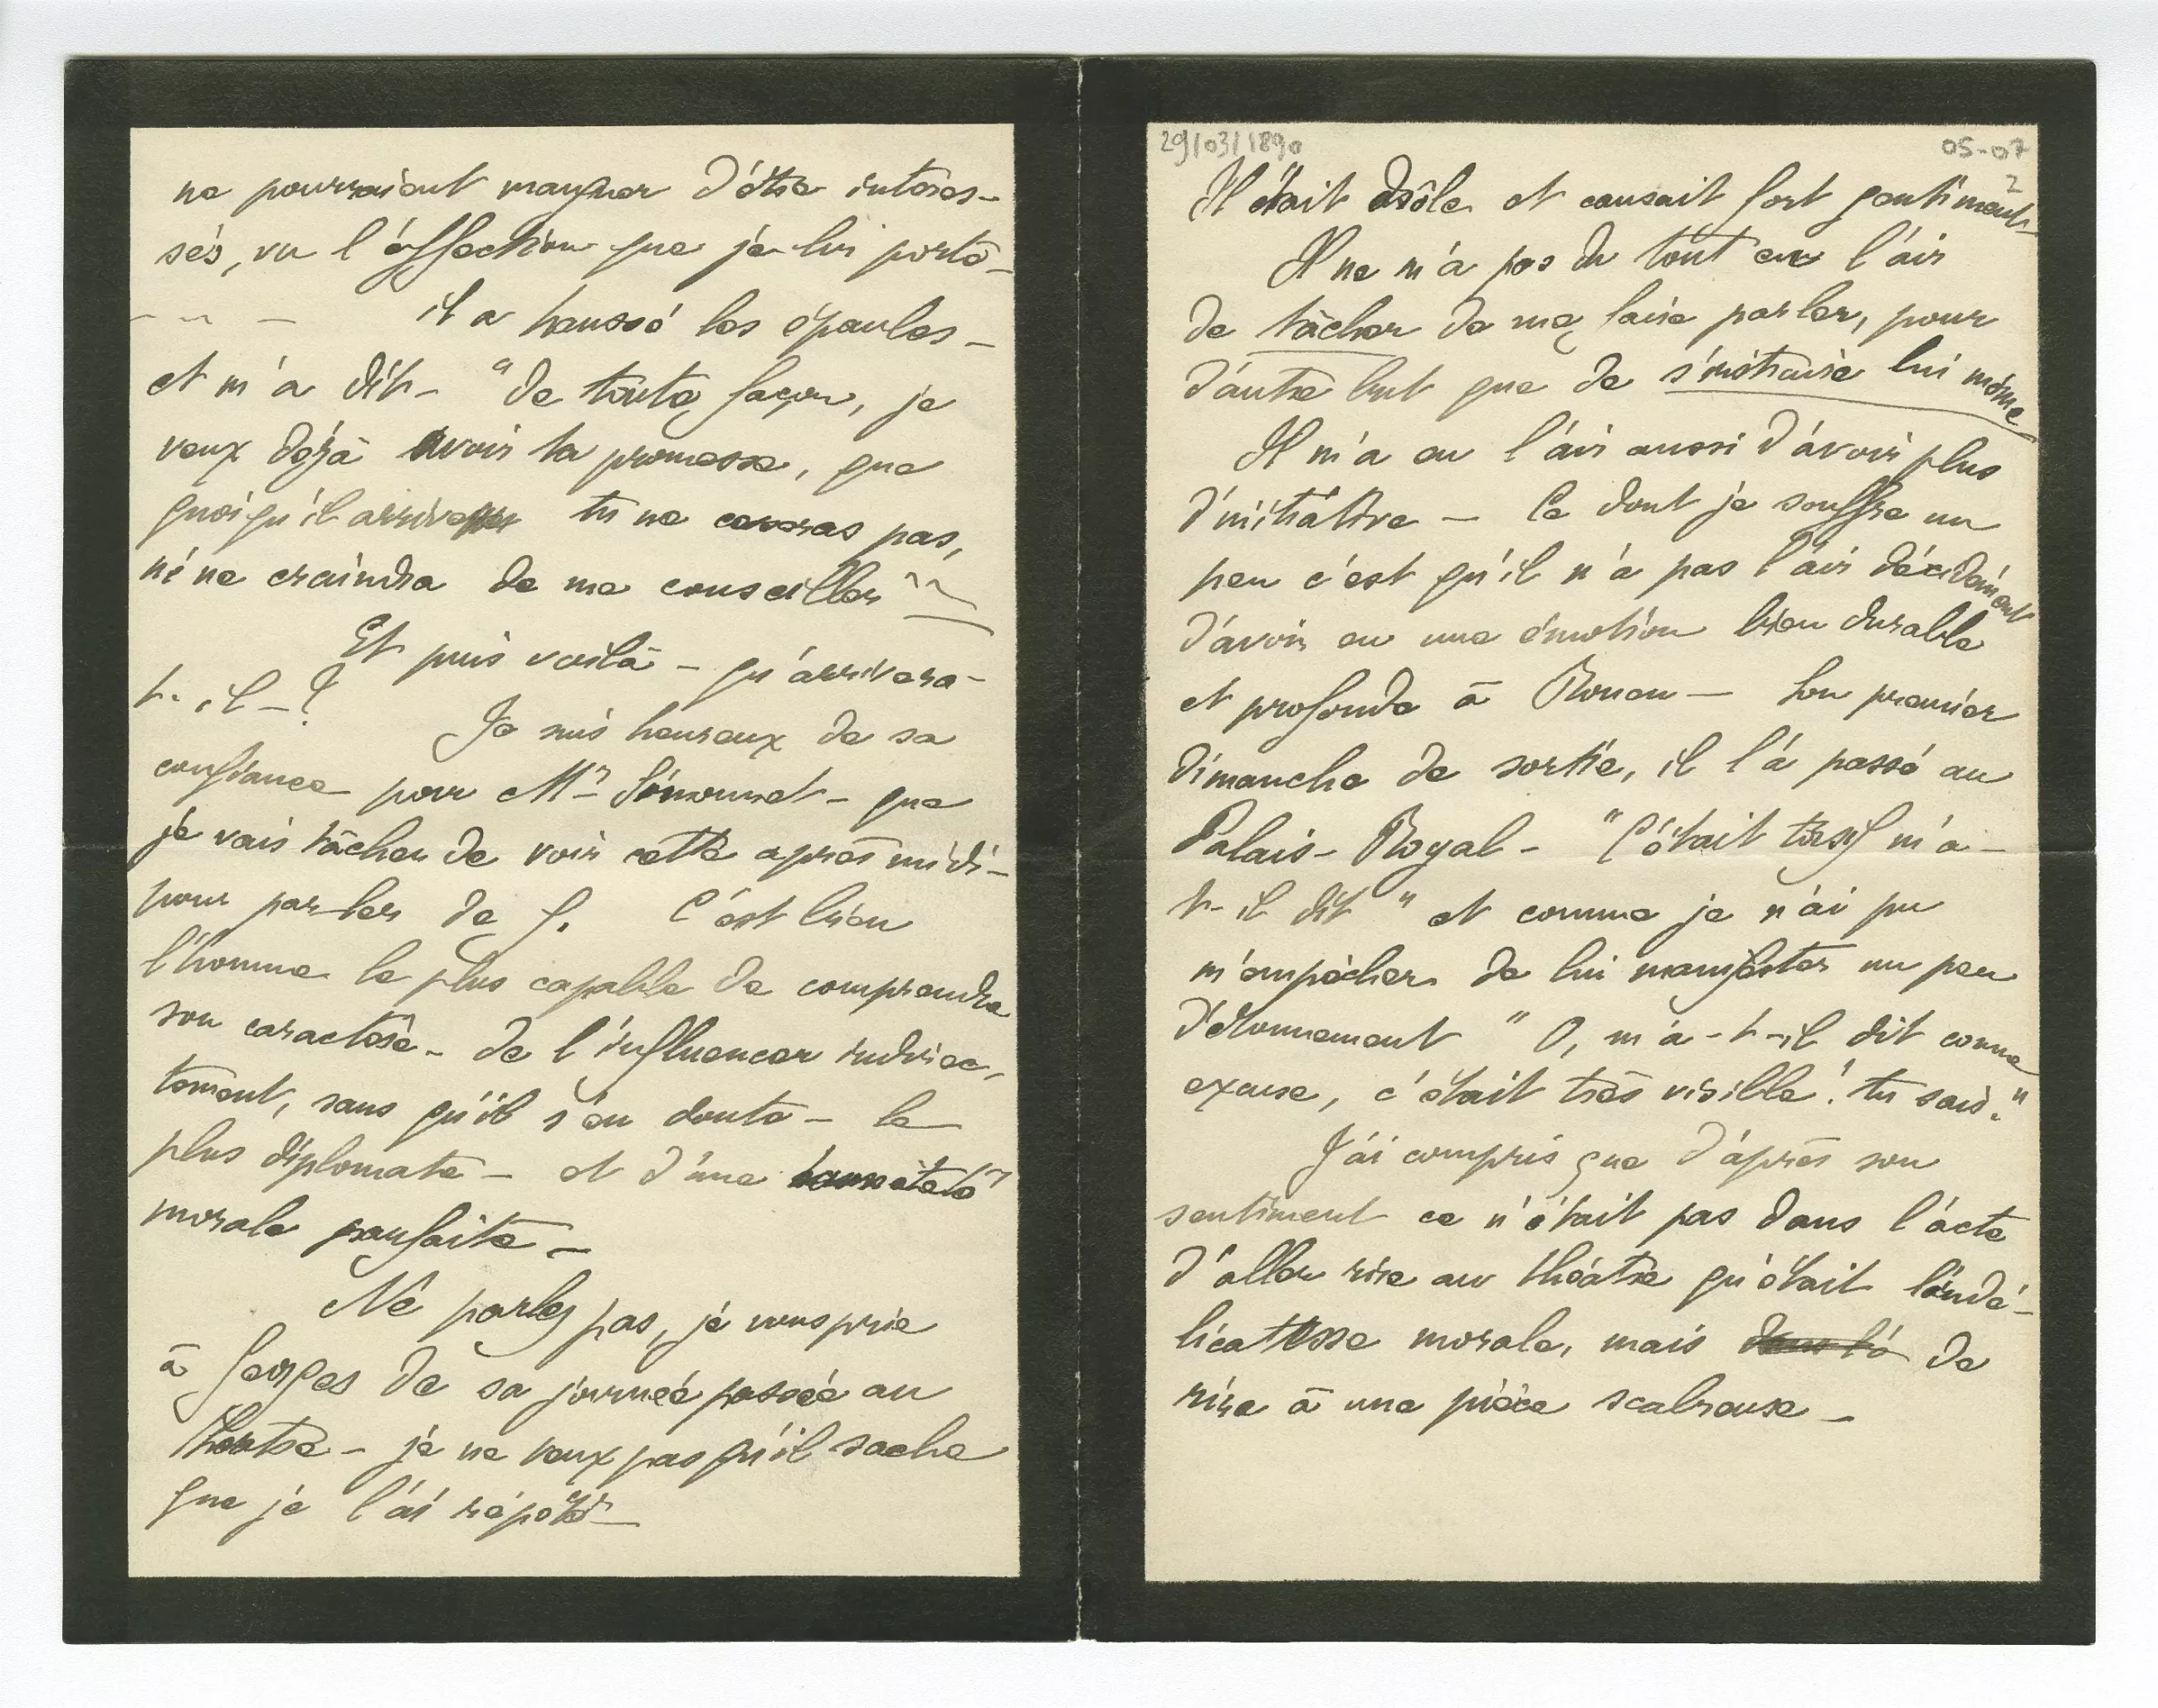 ne pourraient manquer d'être intéres-
sés, vu l'affection que je lui porte -
il a haussé les épaules -
et m'a dit - "de toute façon, je
veux déjà avoir ta promesse, que
quoiqu'il arrive tu ne pas,
ni ne craindra de me conseiller"
Et puis voilà - qu'arrivera-
t-il - ?
Je suis heureux de sa
confiance pour Mr Simonnet - que
je vais tâcher de voir cette après midi -
pour parler de G. C'est bien
l'homme le plus capable de comprendre
son caractère - de l'influencer indirec-
tement, sans qu'il s'en doute - le
plus diplomate - et d'une honnêteté
morale parfaite -
Ne parlez pas, je vous prie
à Georges de sa journée passée au
théâtre - je ne veux pas qu'il sache
que je l'ai répété -
29/03/1890
05-07
2
Il était drôle et causait fort gentiment -
Il ne m'a pas du tout eu l'air
de tâcher de me faire parler, pour
d'autre but que de s'instruire lui même
Il m'a eu l'air aussi d'avoir plus
d'initiative - Ce dont je souffre un
peu c'est qu'il n'a pas l'air décidément
d'avoir eu une émotion bien durable
et profonde à Rouen - Son premier
dimanche de sortie, il l'a passé au
Palais-Royal - "C'était tarif m'a-
t-il dit" et comme je n'ai pu
m'empêcher de lui manifester un peu
d'étonnement "O, m'a-t-il dit comme
excuse, c'était très risible! tu sais."
J'ai compris que d'après son
sentiment ce n'était pas dans l'acte
d'aller rire au théâtre qu'était l'indé-
licatesse morale, mais de
rire à une pièce scabreuse -